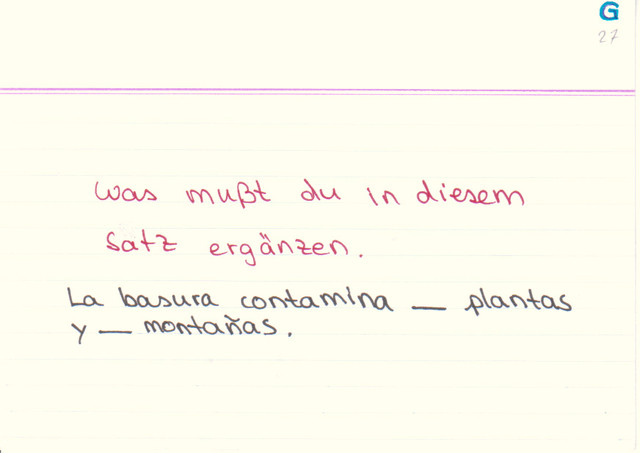 G
27
Was mußt du in diesem
Satz ergänzen.
La basura contamina _ plantas
y _ montañas.